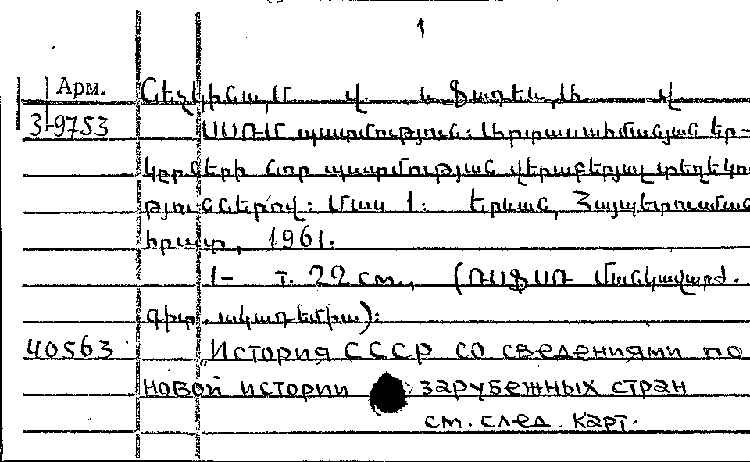 1
Арм. Նեչկինա, Մ. Վ. և Ֆադեև, Ա. Վ.
3-9753 ՍՍՌՄ պատմություն: Արտասահմանյան եր-
կրների նոր պատմության վերաբերյալ տեղեկու
թյուններով: Մաս 1: Երևան, Հայպետուսման
հրատ., 1961.
1- т. 22 см., (ՌՍՖՍՌ Մանկավարժ.
գիտ. ակադեմիա):
40563 История СССР со сведениями по
новой истории зарубежных стран
см. след. карт.